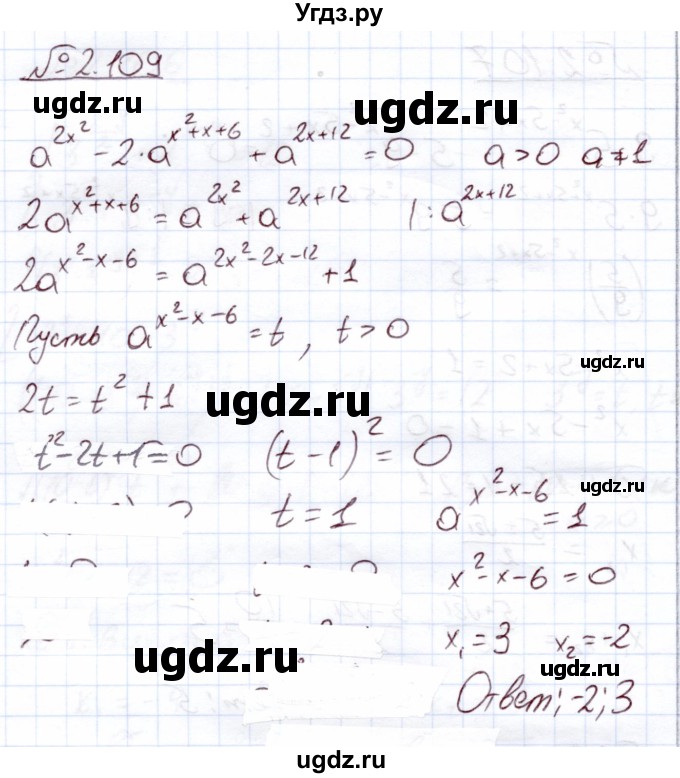 Угдз.ру
№2.109
ugdz.ru ugdz.ru
a^{2x²} - 2·a^{x²+x+6} + a^{2x+12} = 0 a>0 a≠1
2a^{x²+x+6} = a^{2x²} + a^{2x+12} |: a^{2x+12}
2a^{x²-x-6} = a^{2x²-2x-12} + 1
Пусть a^{x²-x-6} = t, t>0
ugdz.ru
2t = t² + 1 ugdz.ru
t² - 2t + 1 = 0 (t-1)² = 0
ugdz.ru
t = 1 a^{x²-x-6} = 1
x² - x - 6 = 0
x₁ = 3 x₂ = -2
ugdz.ru ugdz.ru
Ответ: -2; 3
ugdz.ru